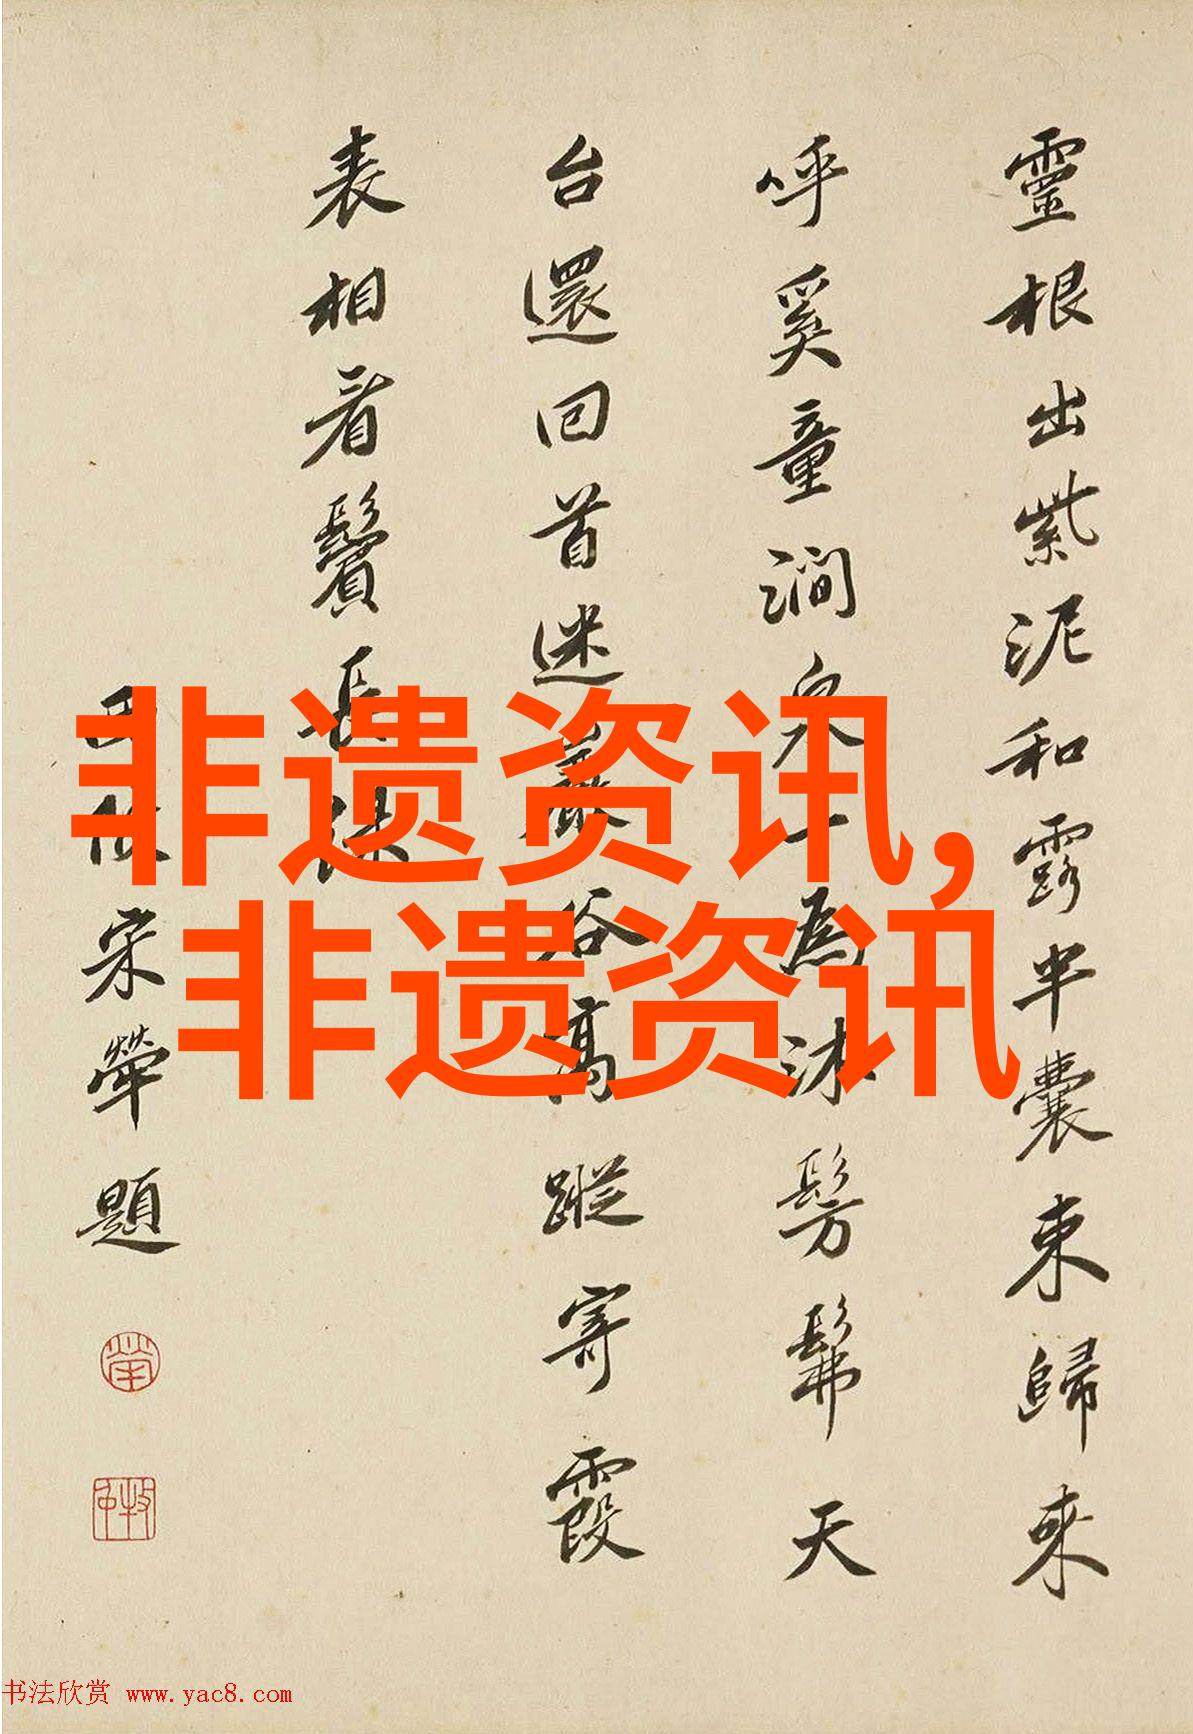 靈根出紫泥和露半囊束歸來
呼奚童澗泉一為沐髣髴天
台還回首迷巖谷高蹤寄霞
表相看鬢長
宋犖題
非遗资讯,
非遗资讯
书法欣赏 www.yac8.com